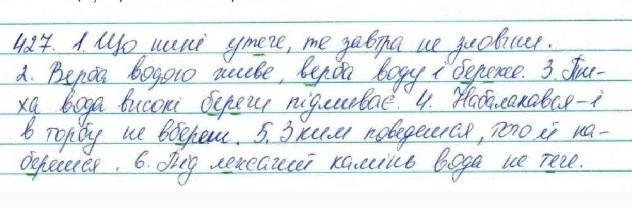 427. 1. Що нині утече, те завтра не зловиш.
2. Верба водою живе, верба воду і береже. 3. Ти-
ха вода високі береги підмиває. 4. Набалакався – і
в торбу не вбереш. 5. З ким поведешся, того й на-
берешся. 6. Під лежачий камінь вода не тече.